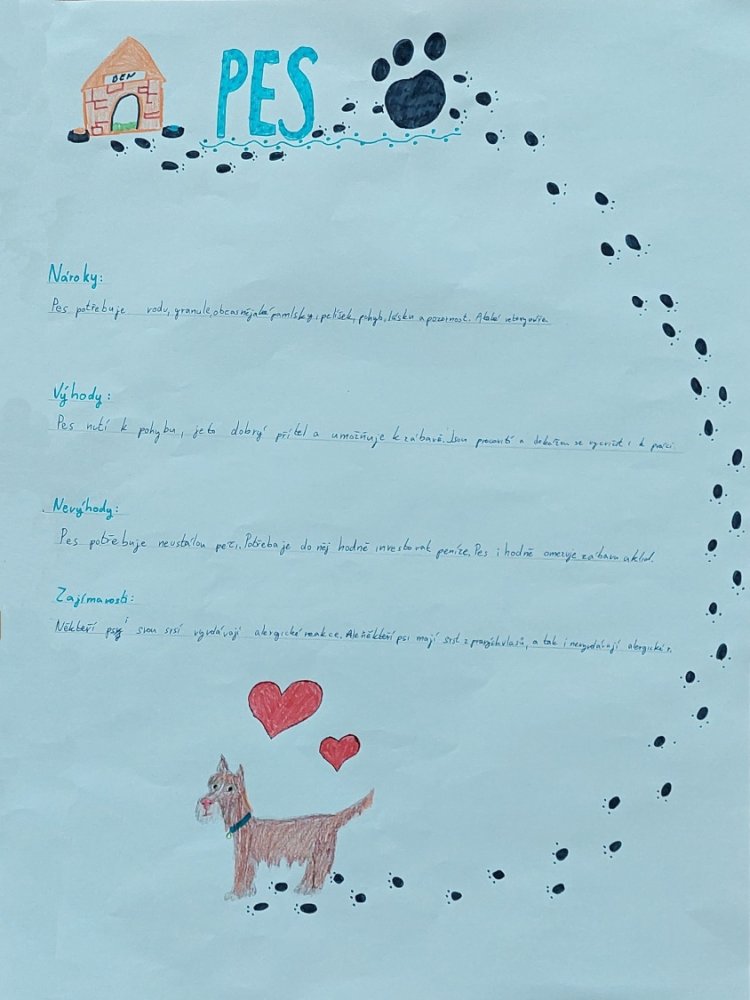 BEN
PES
Nároky:
Pes potřebuje vodu, granule, občas nějaké pamlsky, pelíšek, pohyb, lásku a pozornost. A také veterináře.
Výhody:
Pes nutí k pohybu, je to dobrý přítel a umožňuje k zábavě. Jsou pracovití a dokážou se vycvičit i k práci.
Nevýhody:
Pes potřebuje neustálou péči. Potřeba je do něj hodně investovat peníze. Pes i hodně omezuje zábavu a klid.
Zajímavosti:
Někteří psi svou srsí vyvolávají alergické reakce. Ale někteří psi mají srst z pravých vlasů, a tak i nevyvolávají alergické r.